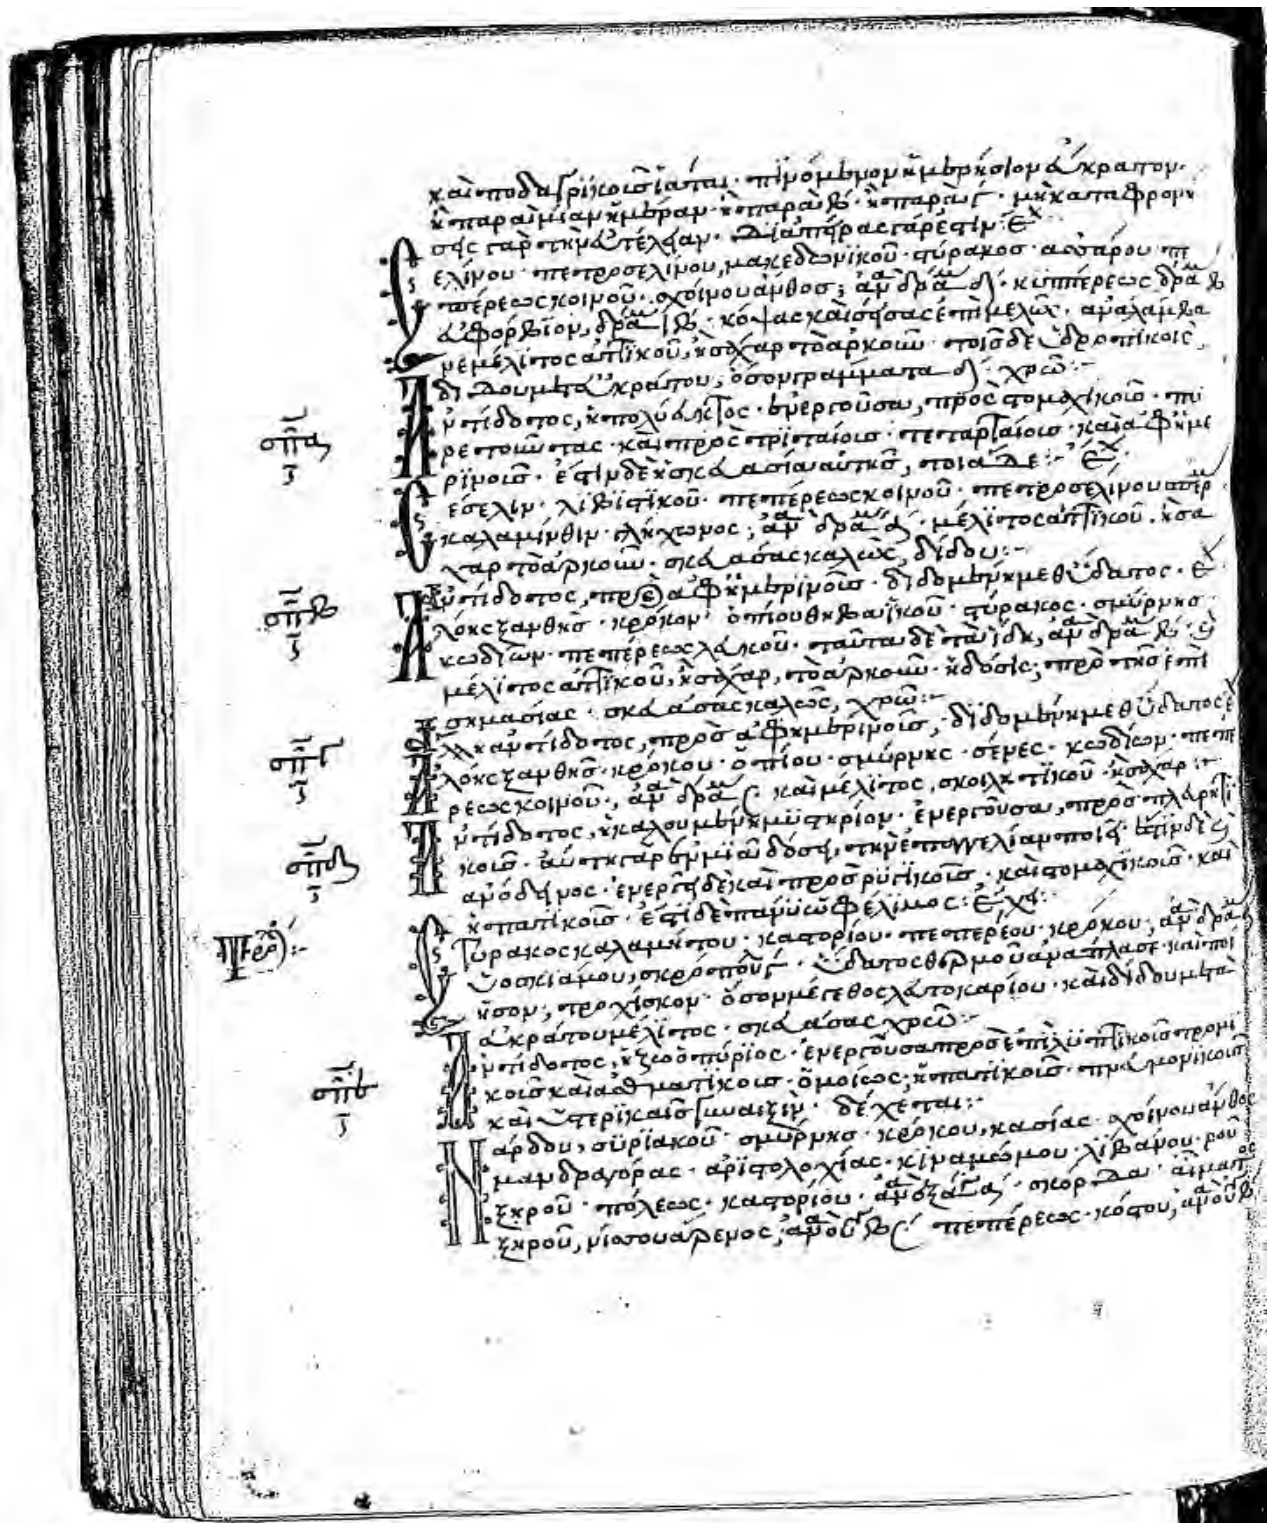 καὶ ποδαγρικοῖς ἰᾶται· πινόμενον ἡμερήσιον ἄκρατον·
ἢ παραὶ μίαν ἡμέραν· ἢ παρὰ β· ἢ παρὰ γ· μὴ καταφρονή
σῃς γὰρ τὴν εὐτέλειαν· διὰ πείρας γάρ ἐστιν·
Σελίνου· πετροσελίνου, μακεδωνικοῦ· στύρακος· ἀσάρου· πε
πέρεως κοινοῦ· σχοίνου ἄνθος; ἀν δρα δ· κυππέρεως δρα β
εὐφόρβιον, δρα ιβ· κόψας καὶ σήσας ἐπιμελῶς· ἀναλάμβα
νε μέλιτος ἀττικοῦ, ἢ σάχαρ τὸ ἀρκοῦν· τοῖς δὲ ὑδροπικοῖς,
δίδου μετὰ εὐκράτου, ὅσον γράμματα δ· χρῶ:-
σπα Ἀντίδοτος, ἡ πολύευκτος· ἐνεργοῦσα, πρὸς στομαχικοὺς· πυ
ρετοιῶντας· καὶ πρὸς τριταίοις· τεταρταίοις· καὶ ἀφημε
ρινοῖς· ἐστιν δὲ ἡ σκευασία αὐτῆς, τοιάδε:-
Σεσέλιν· λιβιστικοῦ· πεπέρεως κοινοῦ· πετροσελίνου σπέρ
καλαμίνθιν· γλήχωνος; ἀν δρα δ· μέλιτος ἀττικοῦ· ἢ σα
χαρ τὸ ἀρκοῦν· σκευάσας καλῶς, δίδου:-
σπβ Ἀντίδοτος, πρὸς ἀφημερινοῖς· διδομένη μεθ ὕδατος·
ἀλόης ξανθῆς· κρόκον· ὀπίου θηβαϊκοῦ· στύρακος· σμύρνης·
κωδίων· πεπέρεως λευκοῦ· ταῦτα δὲ τὰ εἴδη, ἀν δρα β·
μέλιτος ἀττικοῦ, ἢ σάχαρ, τὸ ἀρκοῦν· ἡ δόσις; πρὸ τῆς ἐπι
σημασίας· σκευάσας καλῶς, χρῶ:-
σπγ Ἄλλη ἀντίδοτος, πρὸς ἀφημερινοῖς, διδομένη μεθ ὕδατος
ἀλόης ξανθῆς· κρόκου· ὀπίου· σμύρνης· κωδίων· πεπε
ρεως κοινοῦ, ἀν δρα ϛ· καὶ μέλιτος, σκοιλητικοῦ· ἢ σάχαρ:-
σπδ Ἀντίδοτος, ἡ καλουμένη μυστήριον· ἐνεργοῦσα, πρὸς πλευρητι
κοῖς· αὕτη γὰρ ἐν μιᾷ δόσει, τὴν ἐπαγγελίαν ποιεῖ·
ἀνόδηνος· ἐνεργεῖ δὲ καὶ πρὸς ῥυσικοῖς· καὶ στομαχικοῖς· καὶ
ἡπατικοῖς· ἐστι δὲ πάνυ ὠφέλιμος:
Στύρακος καλαμήτου· καστορίου· πεπέρεου· κρόκου, ἀν δρα
ὑοσκιάμου, ὕδατος θερμοῦ ἀνάπλασε· καὶ ποί
ησον, τροχίσκον· ὅσον μέγεθος λεπτοκαρίου· καὶ δίδου μετὰ
ἀκράτου μέλιτος· σκευάσας χρῶ:-
σπε Ἀντίδοτος, ἡ ζωόπυριος· ἐνεργοῦσα πρὸς ἐπιλυπτικοῖς τρομι
κοῖς καὶ ἀσθματικοῖς· ὁμοίως; ἡπατικοῖς· πνευμονικοῖς
καὶ ὑτερικαῖς γυναιξὶν· δέχεται:-
Νάρδου, συριακοῦ· σμύρνης· κρόκου, κασίας· σχοίνου ἄνθος
μανδραγόρας· ἀριστολοχίας· κιναμώμου· λιβάνου· ῥοῦ
ξηροῦ· πόλεως· καστορίου· σκόρδου· αἵματος
ξηροῦ, πεπέρεως· κόστου,